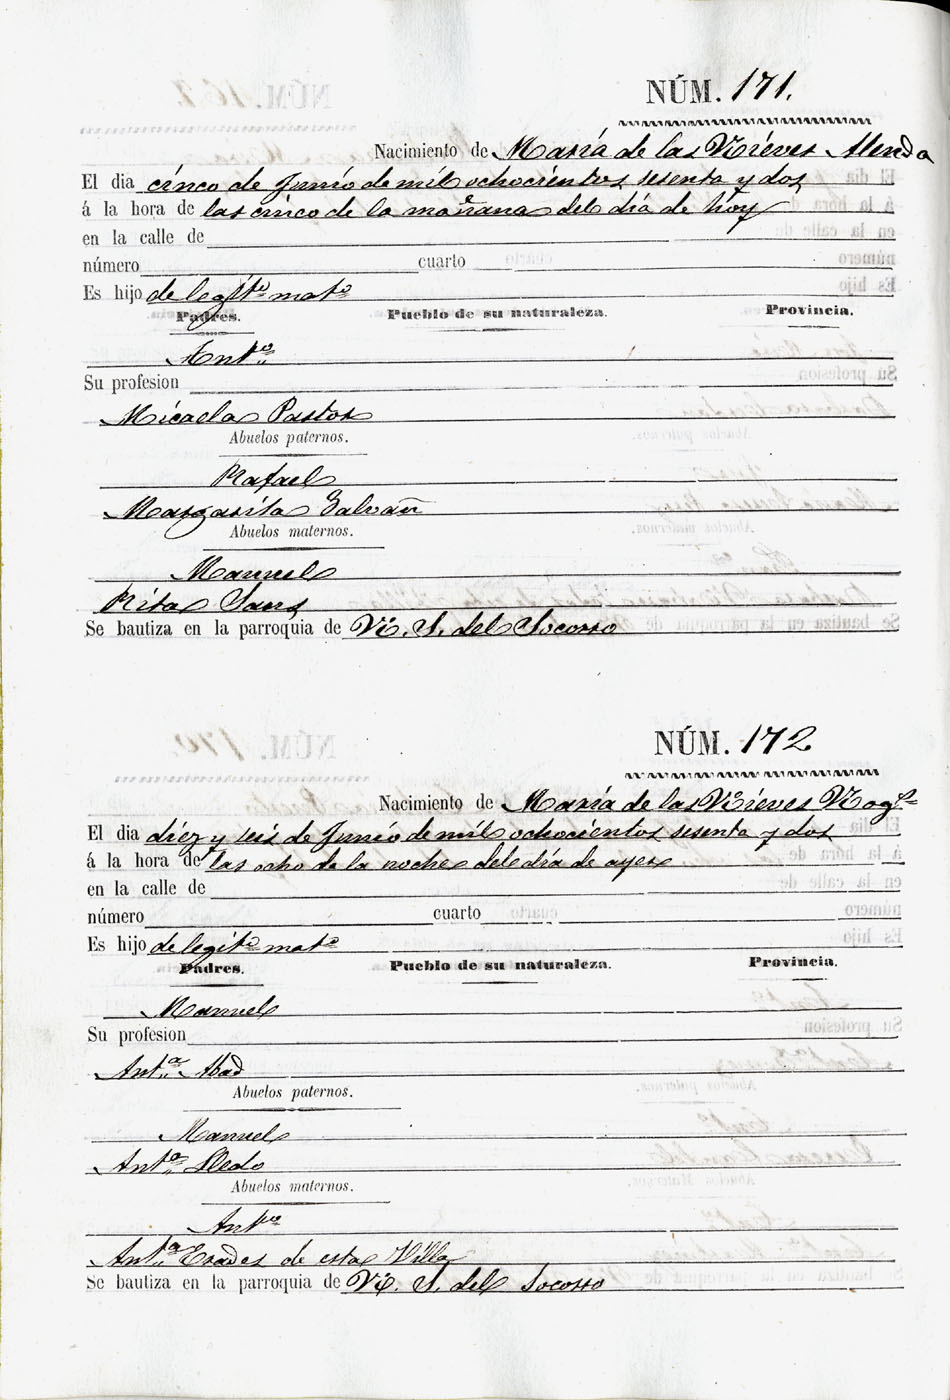 NÚM. 171.
Nacimiento de María de las Nieves Alenda
El dia cinco de Junio de mil ochocientos sesenta y dos
á la hora de las cinco de la mañana del día de hoy
en la calle de
número cuarto
Es hijo de legít.º mat.º
Padres. Pueblo de su naturaleza. Provincia.
Ant.º
Su profesion
Micaela Pastor
Abuelos paternos.
Rafael
Margarita Galvañ
Abuelos maternos.
Manuel
Rita Sans
Se bautiza en la parroquia de N. S. del Socorro
NÚM. 172
Nacimiento de María de las Nieves
El dia diez y seis de Junio de mil ochocientos sesenta y dos
á la hora de las ocho de la noche del día de ayer
en la calle de
número cuarto
Es hijo de legít.º mat.º
Padres. Pueblo de su naturaleza. Provincia.
Manuel
Su profesion
Ant.ª Abad
Abuelos paternos.
Manuel
Ant.ª Lledo
Abuelos maternos.
Ant.º
Ant.ª Erades de esta Villa
Se bautiza en la parroquia de N. S. del Socorro